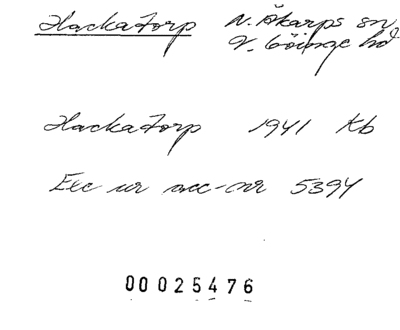 Hackatorp N. Åkarps sn
V. Göinge hd
Hackatorp 1941 Kb
Exc ur acc-nr 5394
00025476